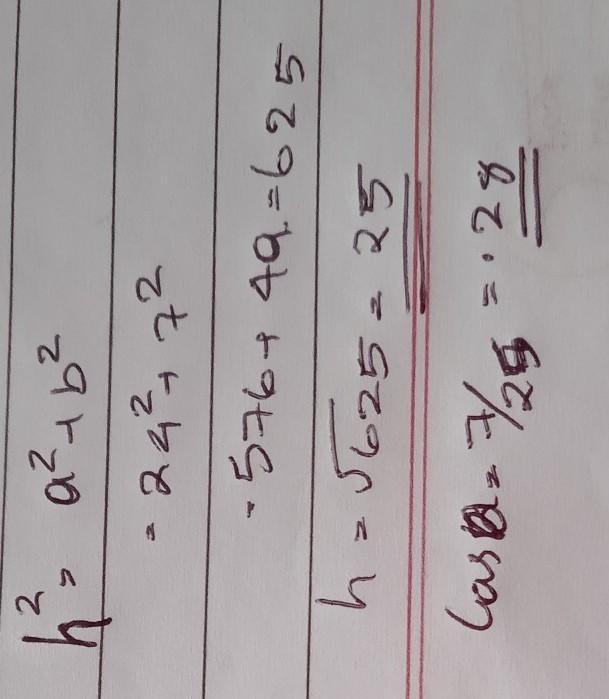 h² = a² + b²
= 24² + 7²
= 576 + 49 = 625
h = √625 = 25
Cos = 7/25 = .28